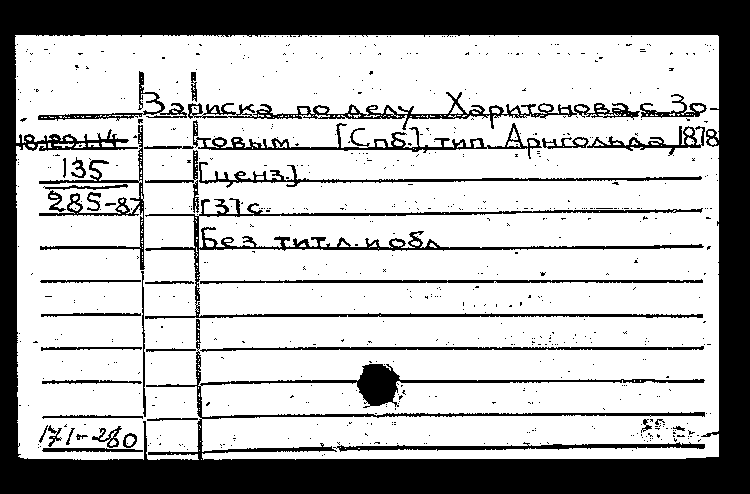 Записка по делу Харитонова с Зо-
18.129.1.14 товым. [Спб.], тип. Арнгольда, 1878
135 [ценз.].
285-87 [3] с.
Без тит. л. и обл
171-280